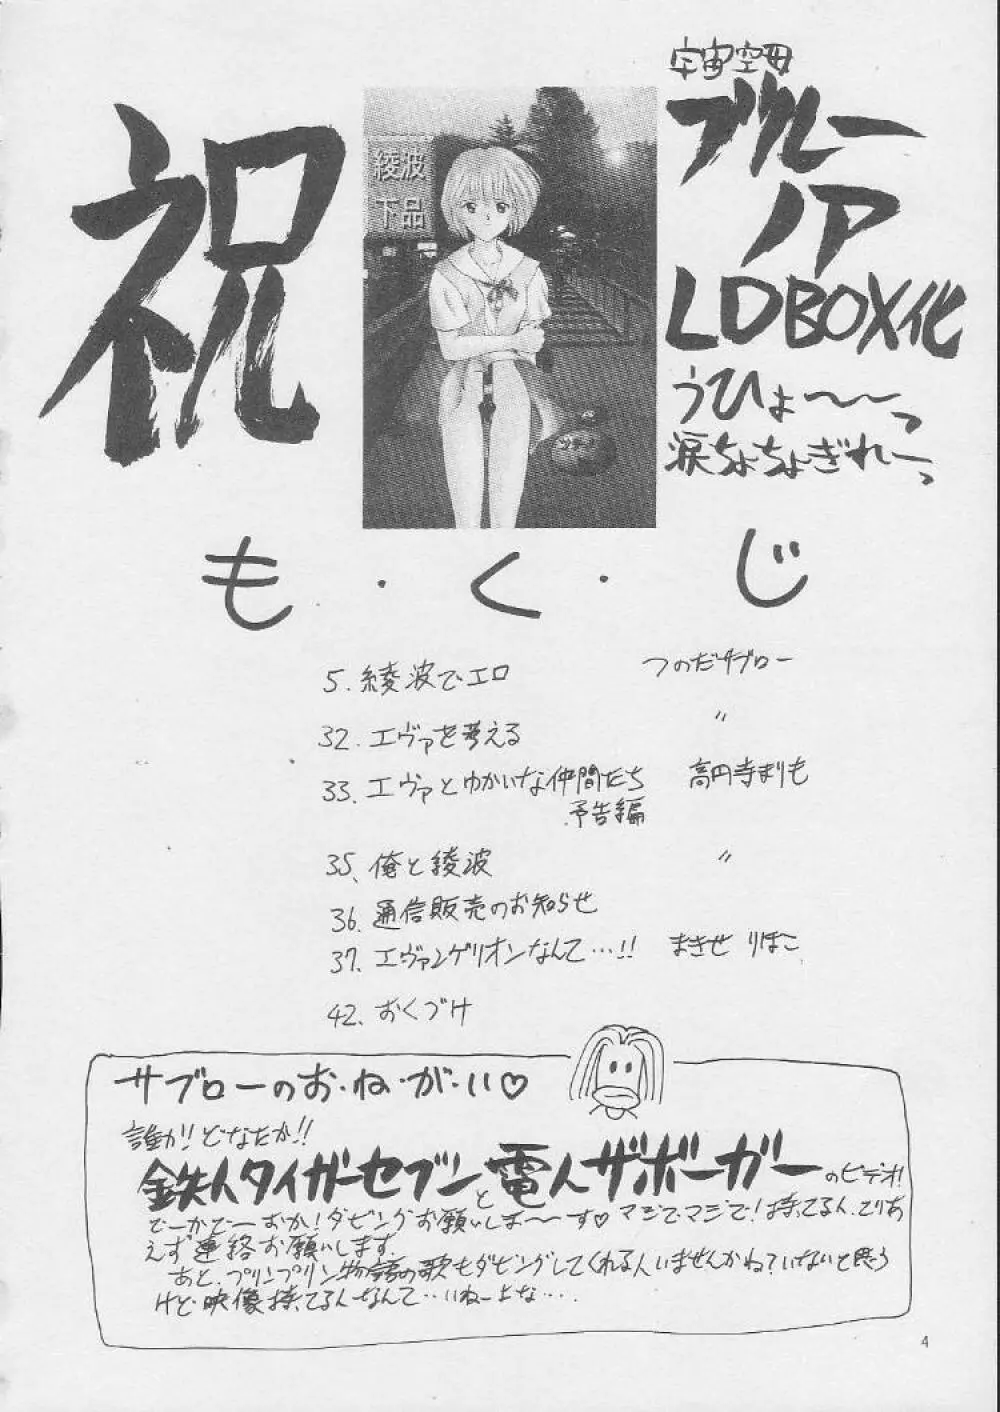 祝
綾波
下品
宇宙空母
ブルー
ノア
LD BOX化
うひょ〜〜っ
涙ちょちょぎれーっ
も・く・じ
5. 綾波でエロ つのだサブロー
32. エヴァを考える 〃
33. エヴァとゆかいな仲間たち 高円寺まりも
予告編
35. 俺と綾波 〃
36. 通信販売のお知らせ
37. エヴァンゲリオンなんて…!! まきせ りほこ
42. おくづけ
サブローのお・ね・が・い♡
誰か!! どなたか!!
鉄人タイガーセブンと電人ザボーガーのビデオ!
どーかどーおか! ダビングお願いしま〜〜す♡ マジでマジで! 持ってる人、とりあ
えず連絡お願いします。
あと、プリンプリン物語の歌もダビングしてくれる人いませんかね? いないと思う
けど・映像持ってる人なんて…いねーよな…
4